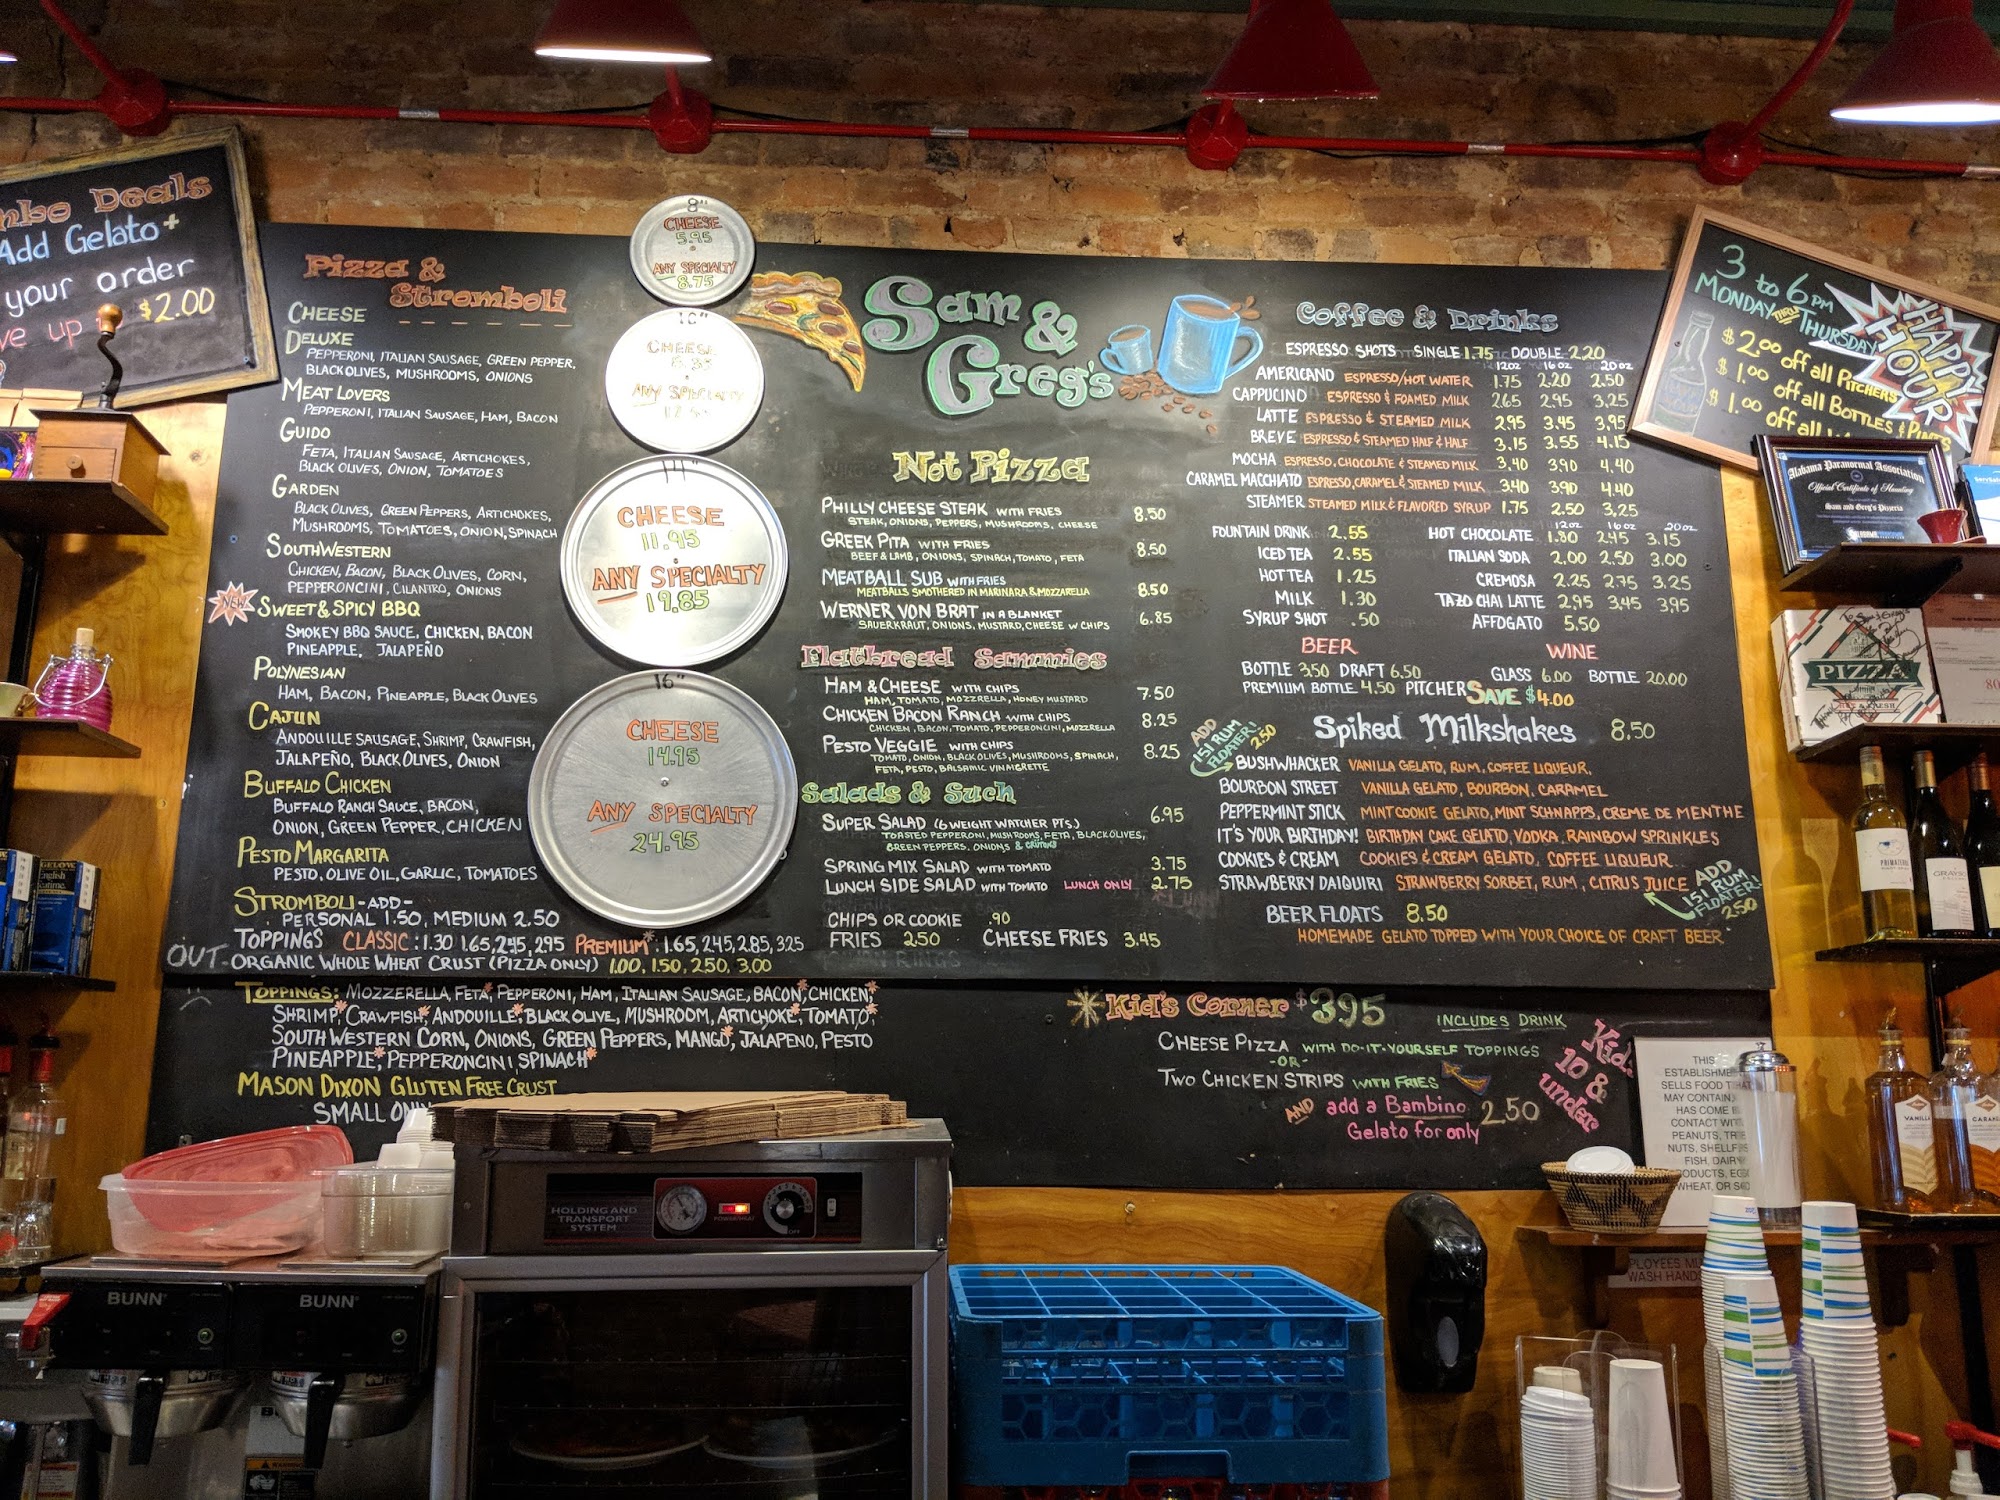 Deals
Add Gelato +
your order
$2.00
Pizza &
Stromboli
CHEESE
DELUXE
PEPPERONI, ITALIAN SAUSAGE, GREEN PEPPER,
BLACK OLIVES, MUSHROOMS, ONIONS
MEAT LOVERS
PEPPERONI, ITALIAN SAUSAGE, HAM, BACON
GUIDO
FETA, ITALIAN SAUSAGE, ARTICHOKES,
BLACK OLIVES, ONION, TOMATOES
GARDEN
BLACK OLIVES, GREEN PEPPERS, ARTICHOKES,
MUSHROOMS, TOMATOES, ONION, SPINACH
SOUTHWESTERN
CHICKEN, BACON, BLACK OLIVES, CORN,
PEPPERONCINI, CILANTRO, ONIONS
NEW
SWEET & SPICY BBQ
SMOKEY BBQ SAUCE, CHICKEN, BACON
PINEAPPLE, JALAPEÑO
POLYNESIAN
HAM, BACON, PINEAPPLE, BLACK OLIVES
CAJUN
ANDOUILLE SAUSAGE, SHRIMP, CRAWFISH,
JALAPEÑO, BLACK OLIVES, ONION
BUFFALO CHICKEN
BUFFALO RANCH SAUCE, BACON,
ONION, GREEN PEPPER, CHICKEN
PESTO MARGARITA
PESTO, OLIVE OIL, GARLIC, TOMATOES
STROMBOLI -ADD-
PERSONAL 1.50, MEDIUM 2.50
TOPPINGS CLASSIC: 1.30 1.65, 2.45, 2.95 PREMIUM*: 1.65, 2.45, 2.85, 3.25
OUT- ORGANIC WHOLE WHEAT CRUST (PIZZA ONLY) 1.00, 1.50, 2.50, 3.00
TOPPINGS: MOZZERELLA, FETA*, PEPPERONI, HAM, ITALIAN SAUSAGE, BACON*, CHICKEN*,
SHRIMP*, CRAWFISH*, ANDOUILLE*, BLACK OLIVE, MUSHROOM, ARTICHOKE*, TOMATO*,
SOUTH WESTERN CORN, ONIONS, GREEN PEPPERS, MANGO*, JALAPENO, PESTO
PINEAPPLE*, PEPPERONCINI, SPINACH*
MASON DIXON GLUTEN FREE CRUST
SMALL
8"
CHEESE
5.95
ANY SPECIALTY
8.75
10"
CHEESE
ANY SPECIALTY
14"
CHEESE
11.95
ANY SPECIALTY
19.85
16"
CHEESE
14.95
ANY SPECIALTY
24.95
Sam &
Greg's
Not Pizza
PHILLY CHEESE STEAK WITH FRIES 8.50
STEAK, ONIONS, PEPPERS, MUSHROOMS, CHEESE
GREEK PITA WITH FRIES 8.50
BEEF & LAMB, ONIONS, SPINACH, TOMATO, FETA
MEATBALL SUB WITH FRIES 8.50
MEATBALLS SMOTHERED IN MARINARA & MOZZARELLA
WERNER VON BRAT IN A BLANKET 6.85
SAUERKRAUT, ONIONS, MUSTARD, CHEESE W CHIPS
Flatbread Sammies
HAM & CHEESE WITH CHIPS 7.50
HAM, TOMATO, MOZZRELLA, HONEY MUSTARD
CHICKEN BACON RANCH WITH CHIPS 8.25
CHICKEN, BACON, TOMATO, PEPPERONCINI, MOZZRELLA
PESTO VEGGIE WITH CHIPS 8.25
TOMATO, ONION, BLACK OLIVES, MUSHROOMS, SPINACH,
FETA, PESTO, BALSAMIC VINAIGRETTE
Salads & Such
SUPER SALAD (6 WEIGHT WATCHER PTS.) 6.95
TOASTED PEPPERONI, MUSHROOMS, FETA, BLACK OLIVES,
GREEN PEPPERS, ONIONS &
SPRING MIX SALAD WITH TOMATO 3.75
LUNCH SIDE SALAD WITH TOMATO LUNCH ONLY 2.75
CHIPS OR COOKIE .90
FRIES 2.50 CHEESE FRIES 3.45
Coffee & Drinks
ESPRESSO SHOTS SINGLE 1.75 DOUBLE 2.20
12oz 16 oz 20 oz
AMERICANO ESPRESSO/HOT WATER 1.75 2.20 2.50
CAPPUCINO ESPRESSO & FOAMED MILK 2.65 2.95 3.25
LATTE ESPRESSO & STEAMED MILK 2.95 3.45 3.95
BREVE ESPRESSO & STEAMED HALF & HALF 3.15 3.55 4.15
MOCHA ESPRESSO, CHOCOLATE & STEAMED MILK 3.40 3.90 4.40
CARAMEL MACCHIATO ESPRESSO, CARAMEL & STEAMED MILK 3.40 3.90 4.40
STEAMER STEAMED MILK & FLAVORED SYRUP 1.75 2.50 3.25
12oz 16 oz 20 oz
FOUNTAIN DRINK 2.55 HOT CHOCOLATE 1.80 2.45 3.15
ICED TEA 2.55 ITALIAN SODA 2.00 2.50 3.00
HOT TEA 1.25 CREMOSA 2.25 2.75 3.25
MILK 1.30 TAZO CHAI LATTE 2.95 3.45 3.95
SYRUP SHOT .50 AFFOGATO 5.50
BEER WINE
BOTTLE 3.50 DRAFT 6.50 GLASS 6.00 BOTTLE 20.00
PREMIUM BOTTLE 4.50 PITCHER SAVE $4.00
Spiked Milkshakes 8.50
ADD
151 RUM
FLOATER!
2.50
BUSHWHACKER VANILLA GELATO, RUM, COFFEE LIQUEUR,
BOURBON STREET VANILLA GELATO, BOURBON, CARAMEL
PEPPERMINT STICK MINT COOKIE GELATO, MINT SCHNAPPS, CREME DE MENTHE
IT'S YOUR BIRTHDAY! BIRTHDAY CAKE GELATO, VODKA, RAINBOW SPRINKLES
COOKIES & CREAM COOKIES & CREAM GELATO, COFFEE LIQUEUR
STRAWBERRY DAIQUIRI STRAWBERRY SORBET, RUM, CITRUS JUICE
ADD
151 RUM
FLOATER!
2.50
BEER FLOATS 8.50
HOMEMADE GELATO TOPPED WITH YOUR CHOICE OF CRAFT BEER
Kid's Corner $3.95
INCLUDES DRINK
CHEESE PIZZA WITH DO-IT-YOURSELF TOPPINGS
-OR-
TWO CHICKEN STRIPS WITH FRIES
AND add a Bambino 2.50
Gelato for only
10 &
under
3 to 6 PM
MONDAY THRU
THURSDAY
HAPPY
HOUR
$2.00 off all PITCHERS
$1.00 off all BOTTLES & PINTS
$1.00 off all
Alabama Paranormal Association
Official Certificate of Haunting
Sam and Greg's Pizzeria
PIZZA
THIS
SELLS FOOD THAT
MAY CONTAIN
HAS COME
CONTACT
PEANUTS, TREE
NUTS,
FISH, DAIRY
WHEAT, OR
WASH
HOLDING AND
TRANSPORT
SYSTEM
BUNN
BUNN
English
VANILLA